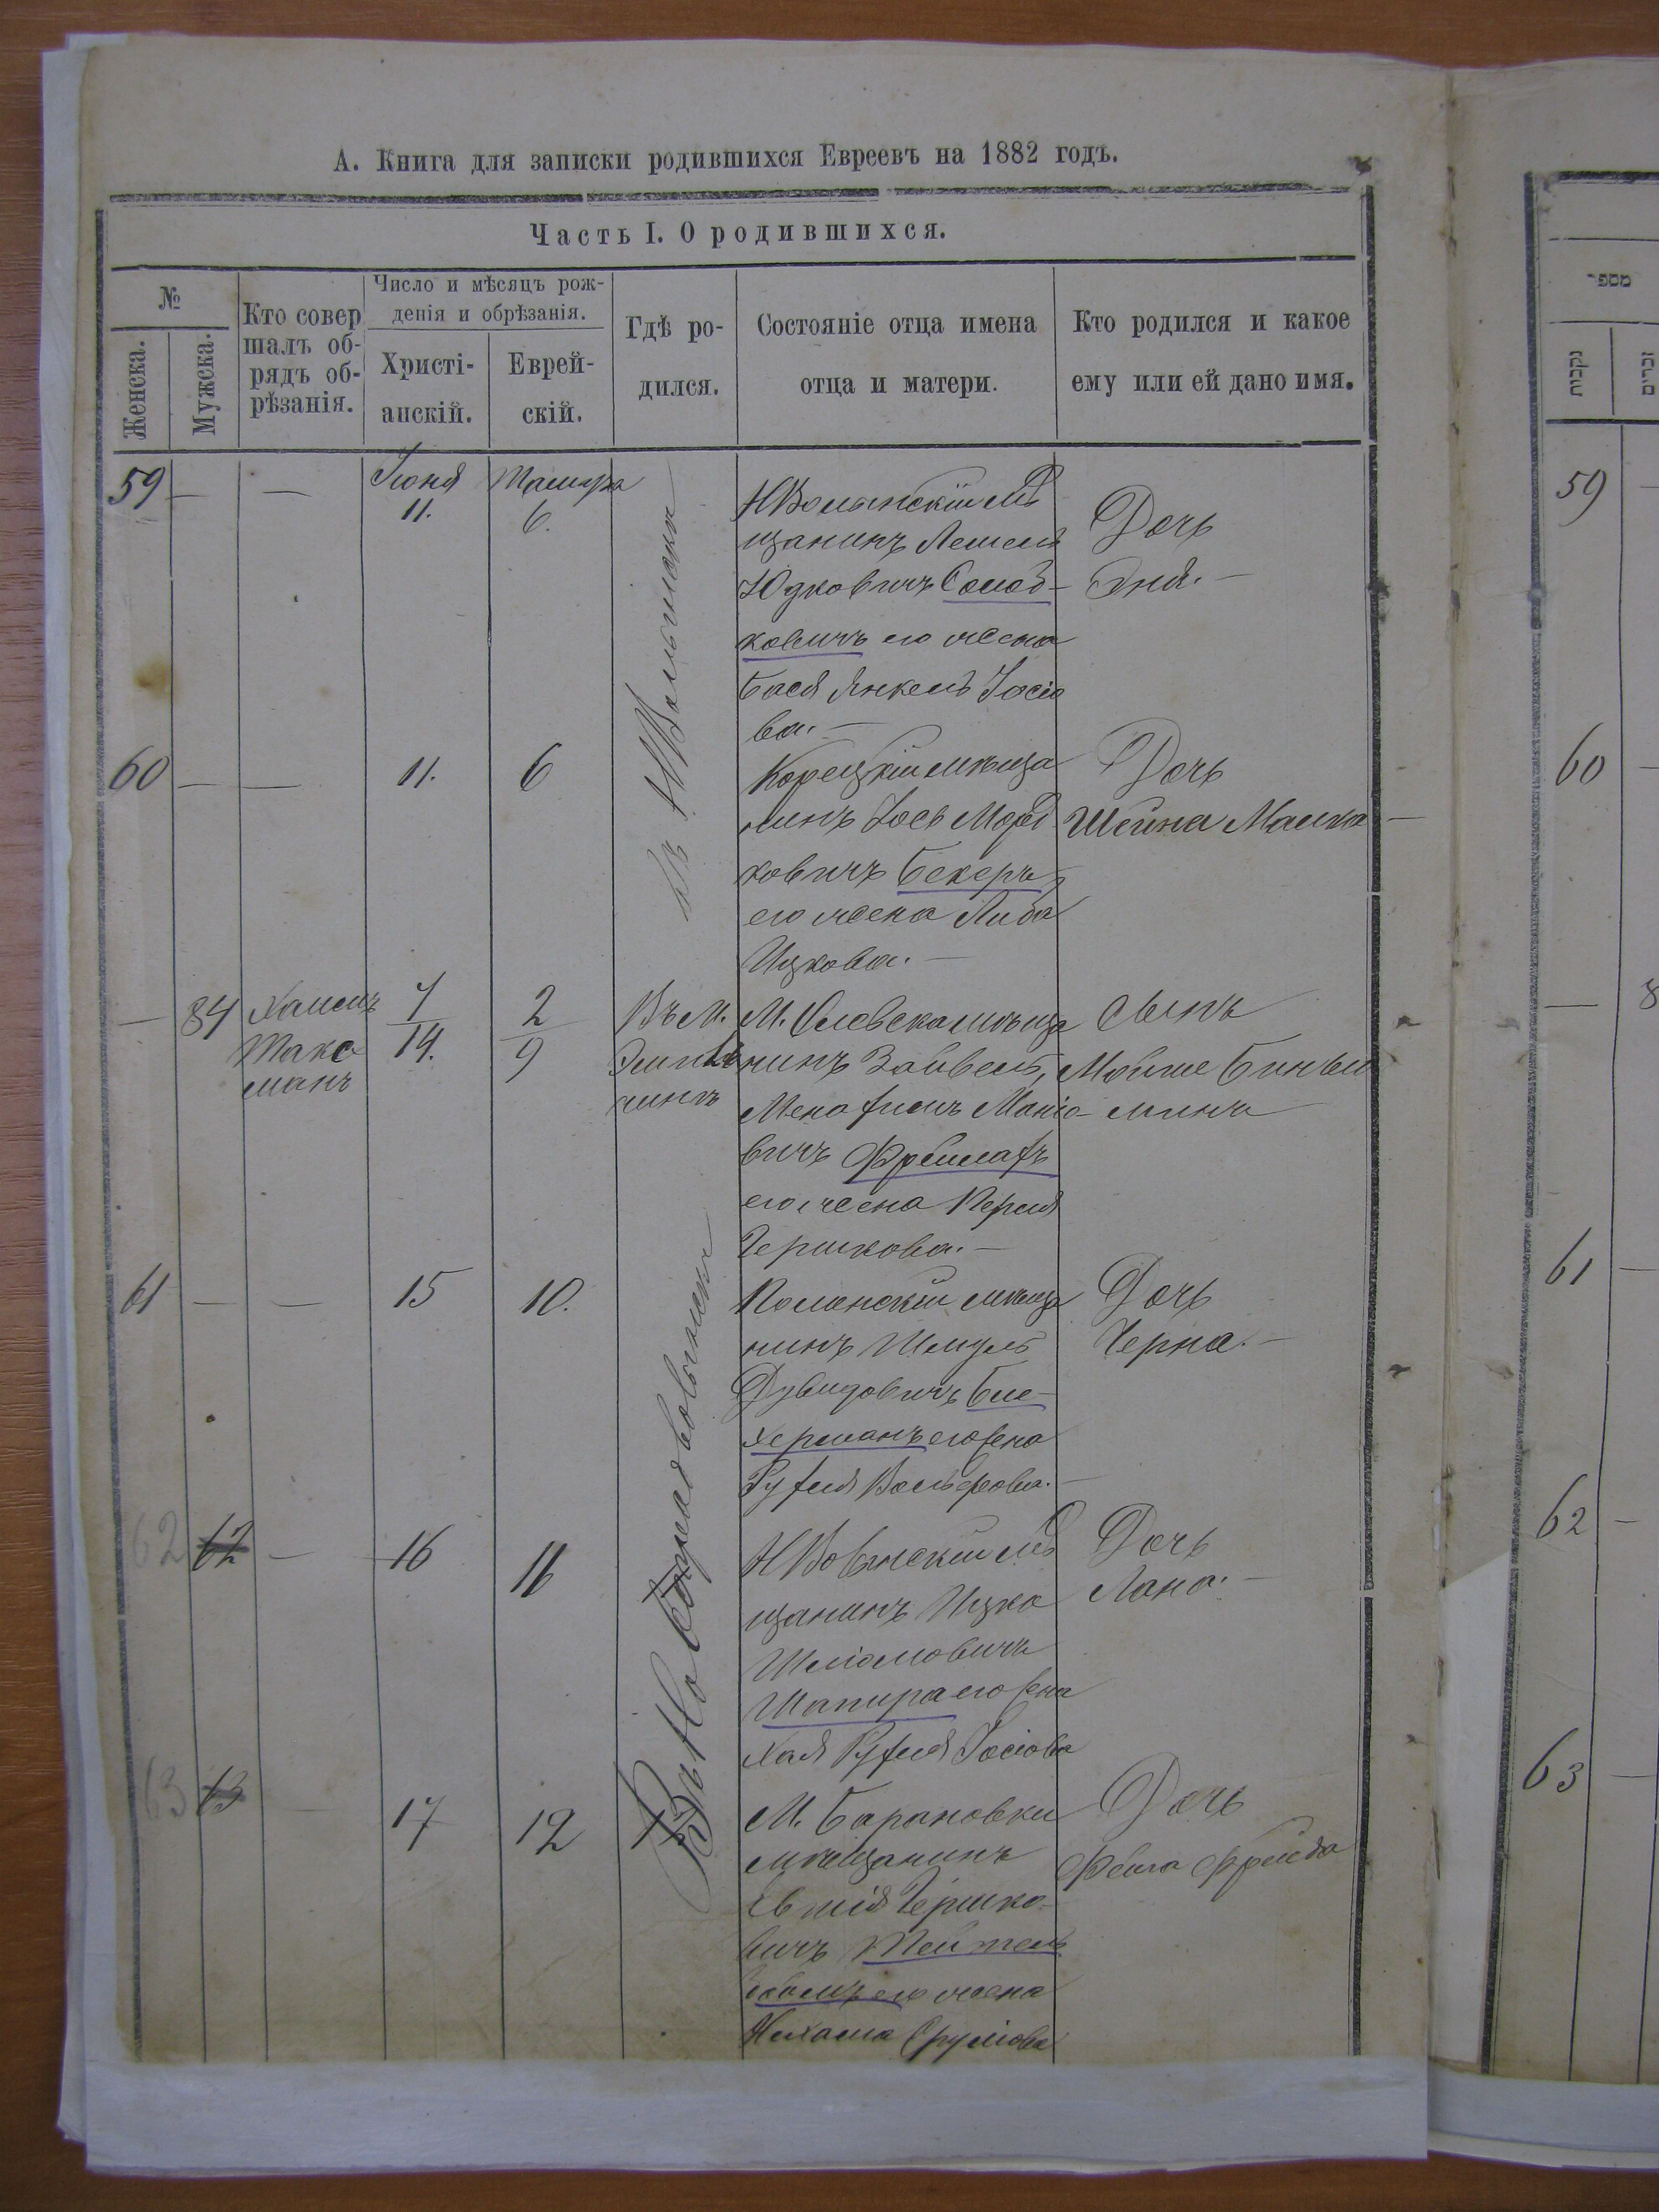 А. Книга для записки родившихся Евреевъ на 1882 годъ.
Часть I. О родившихся.
№
Женска.
Мужска.
Кто совер
шалъ об-
рядъ об-
рѣзанія.
Число и мѣсяцъ рож-
денія и обрѣзанія.
Христі-
анскій.
Еврей-
скій.
Гдѣ ро-
дился.
Состояніе отца имена
отца и матери.
Кто родился и какое
ему или ей дано имя.
59 — —
Іюня
11.
Тамуза
6.
въ НВолынскѣ
НВолынскій мѣ
щанинъ Лейзеръ
Юдковичъ
ковичъ его жена
Бася Янкель Іосіо
ва. —
Дочь
Эня. —
60 — — 11. 6
Корецкій мѣща
нинъ Іось Морд
ковичъ Бекеръ,
его жена Либа
Ицкова. —
Дочь
Шейна Малка —
— 84
Хаимъ
Такс
манъ
7
14.
2
9
Въ М.
Эмиль
чинъ
М. Олевска мѣща
нинъ Зайвель,
вичъ
его жена Перля
Гершкова. —
Сынъ
Мойше Биньи
минъ
61 — — 15 10.
Полонскій мѣща
нинъ Шмуль
Дувидовичъ Бле-
херманъ его жена
Рухля Вольфова. —
Дочь
Черна. —
62 62 — 16 11
НВолынскій мѣ
щанинъ Ицко
Шлiомовичъ
Шапира его жена
Хая Рухля Іосіова
Дочь
Хана. —
63 63 — 17 12
М. Барановки
мѣщанинъ
Гершко
вичъ Тейтель
боимъ его жена
Нехама Сруліова
Дочь
Фейга Фрейда
מספר
נקבות
זכרים
59 —
60 —
— 8
61 —
62 —
63 —